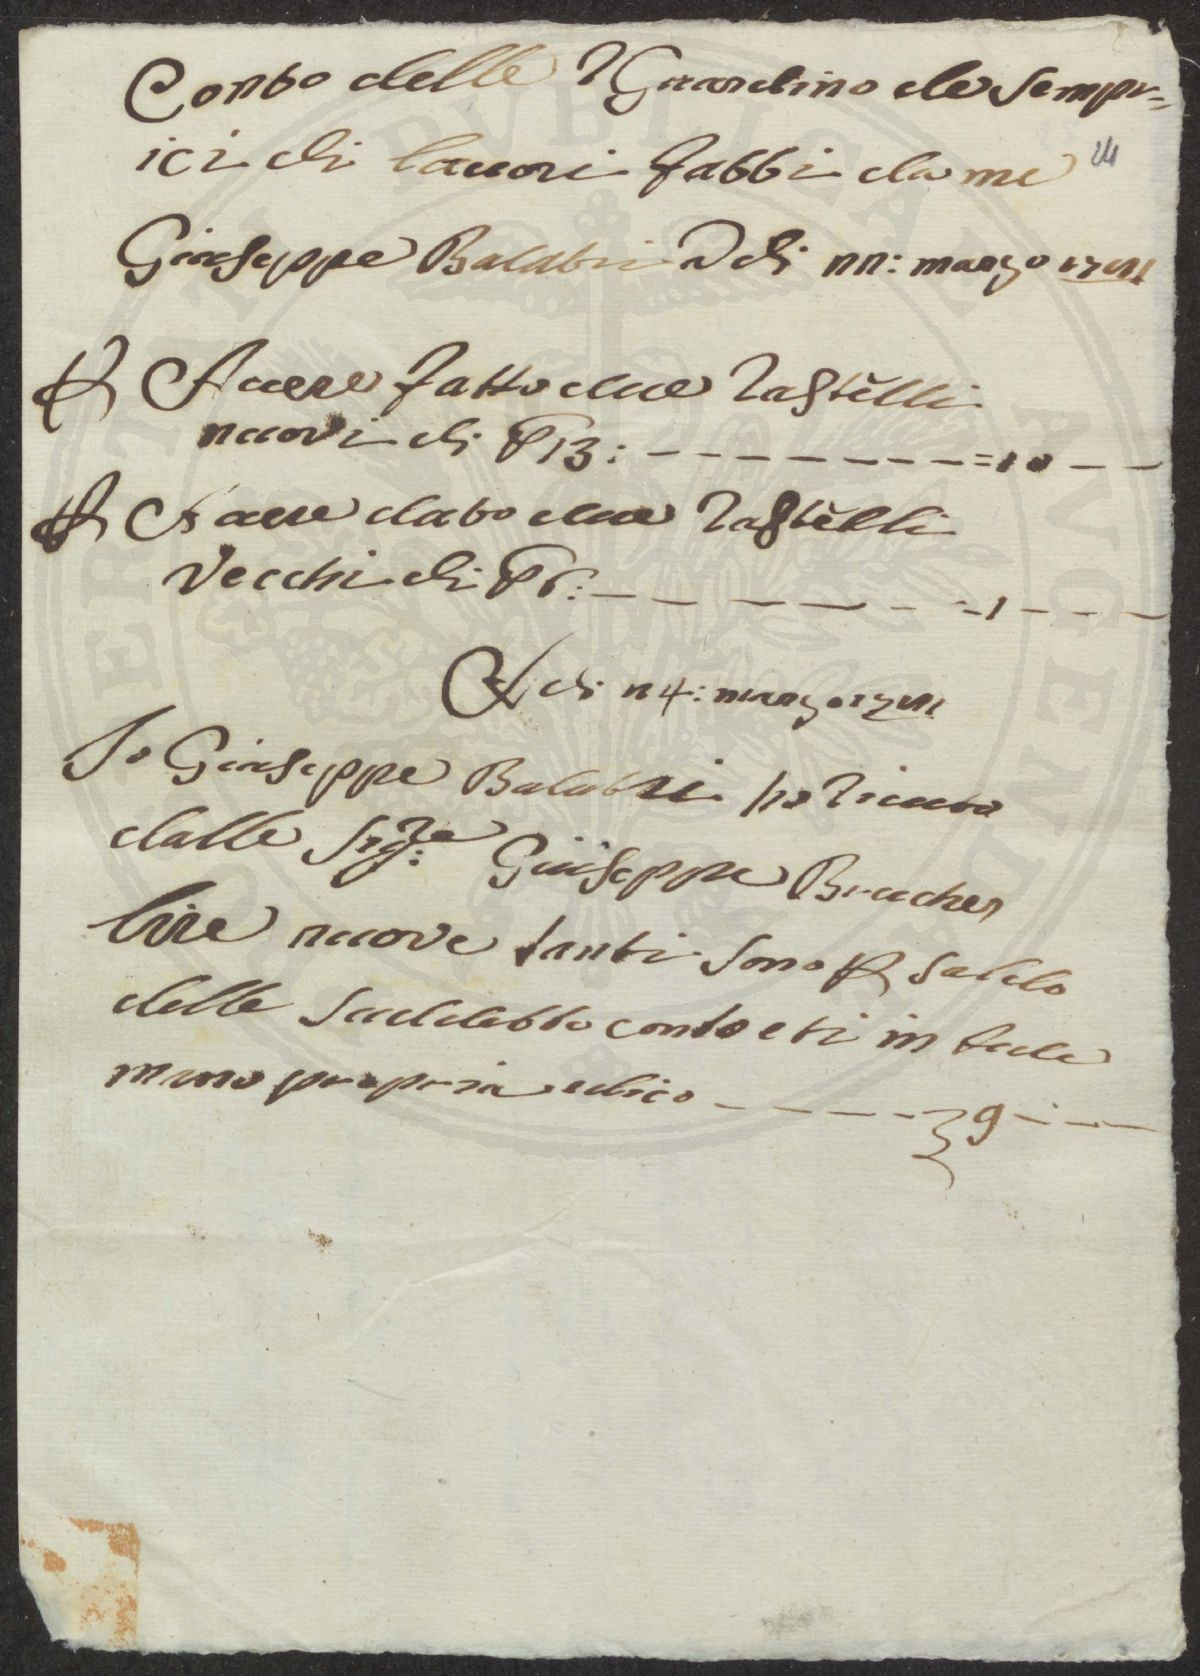 Conto delle Giardino de Sempr=
ici di lauori fatti da me
Giuseppe Balatri Adi 11: marzo
Per Auere fatto due Rastelli
nuovi di P 13: =10
Per Auere dato due Rastelli
vecchi di P 6: =1
Adi 14: marzo
Io Giuseppe Balatri ho riceuto
dalle Sig:re Giuseppe Brucher
lire nuove tanti sono per saldo
delle Suddetto conto eti in fede
mano propria dico 9